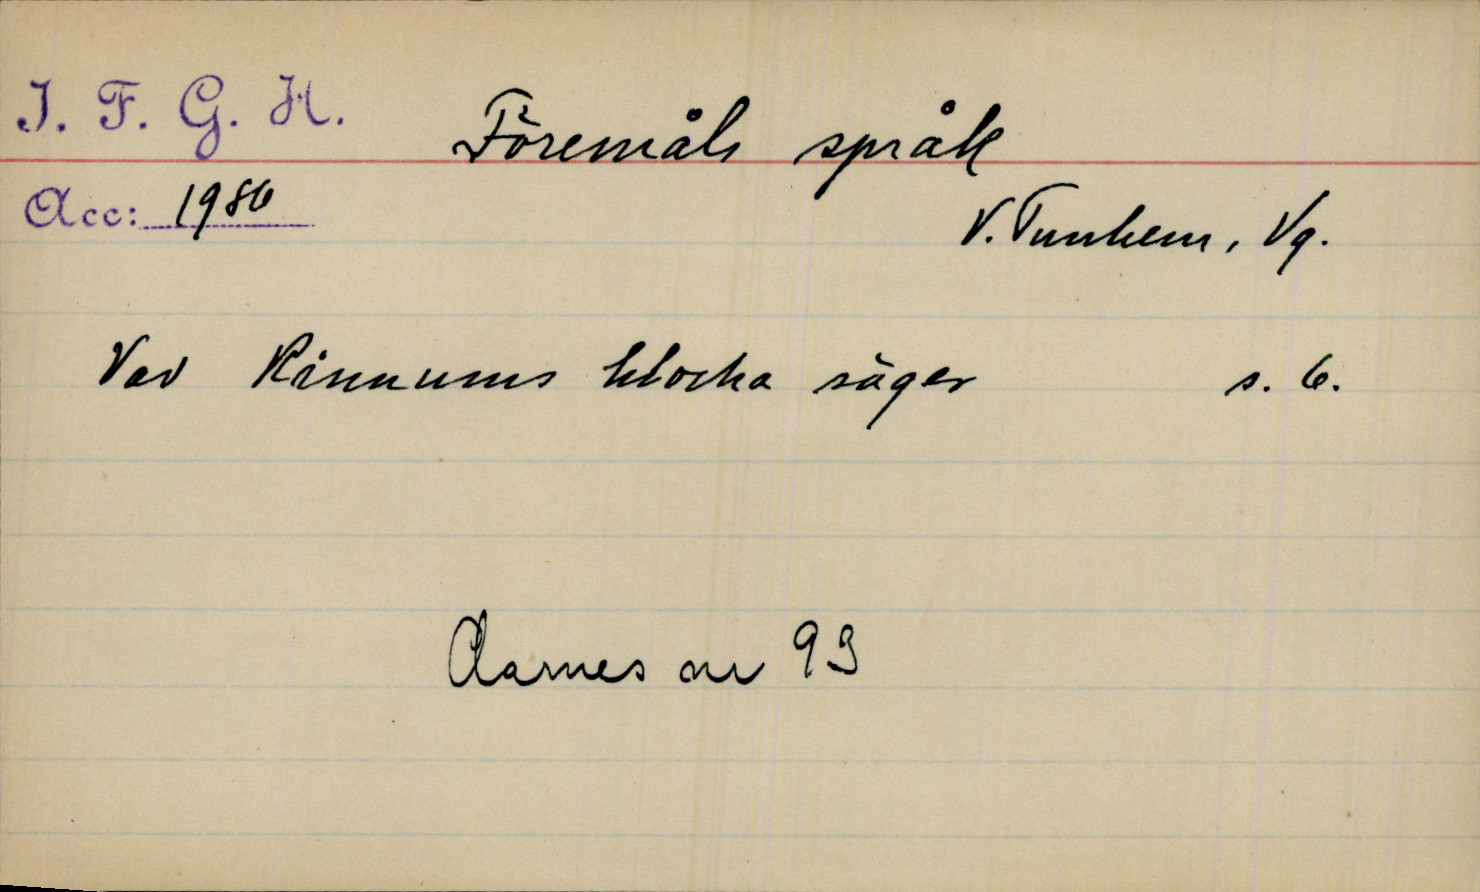 I. F. G. H.
Föremåls språk
Acc: 1986
V. Tunhem, Vg.
Vad Rånnums klocka säger s. 6.
Aarnes nr 93